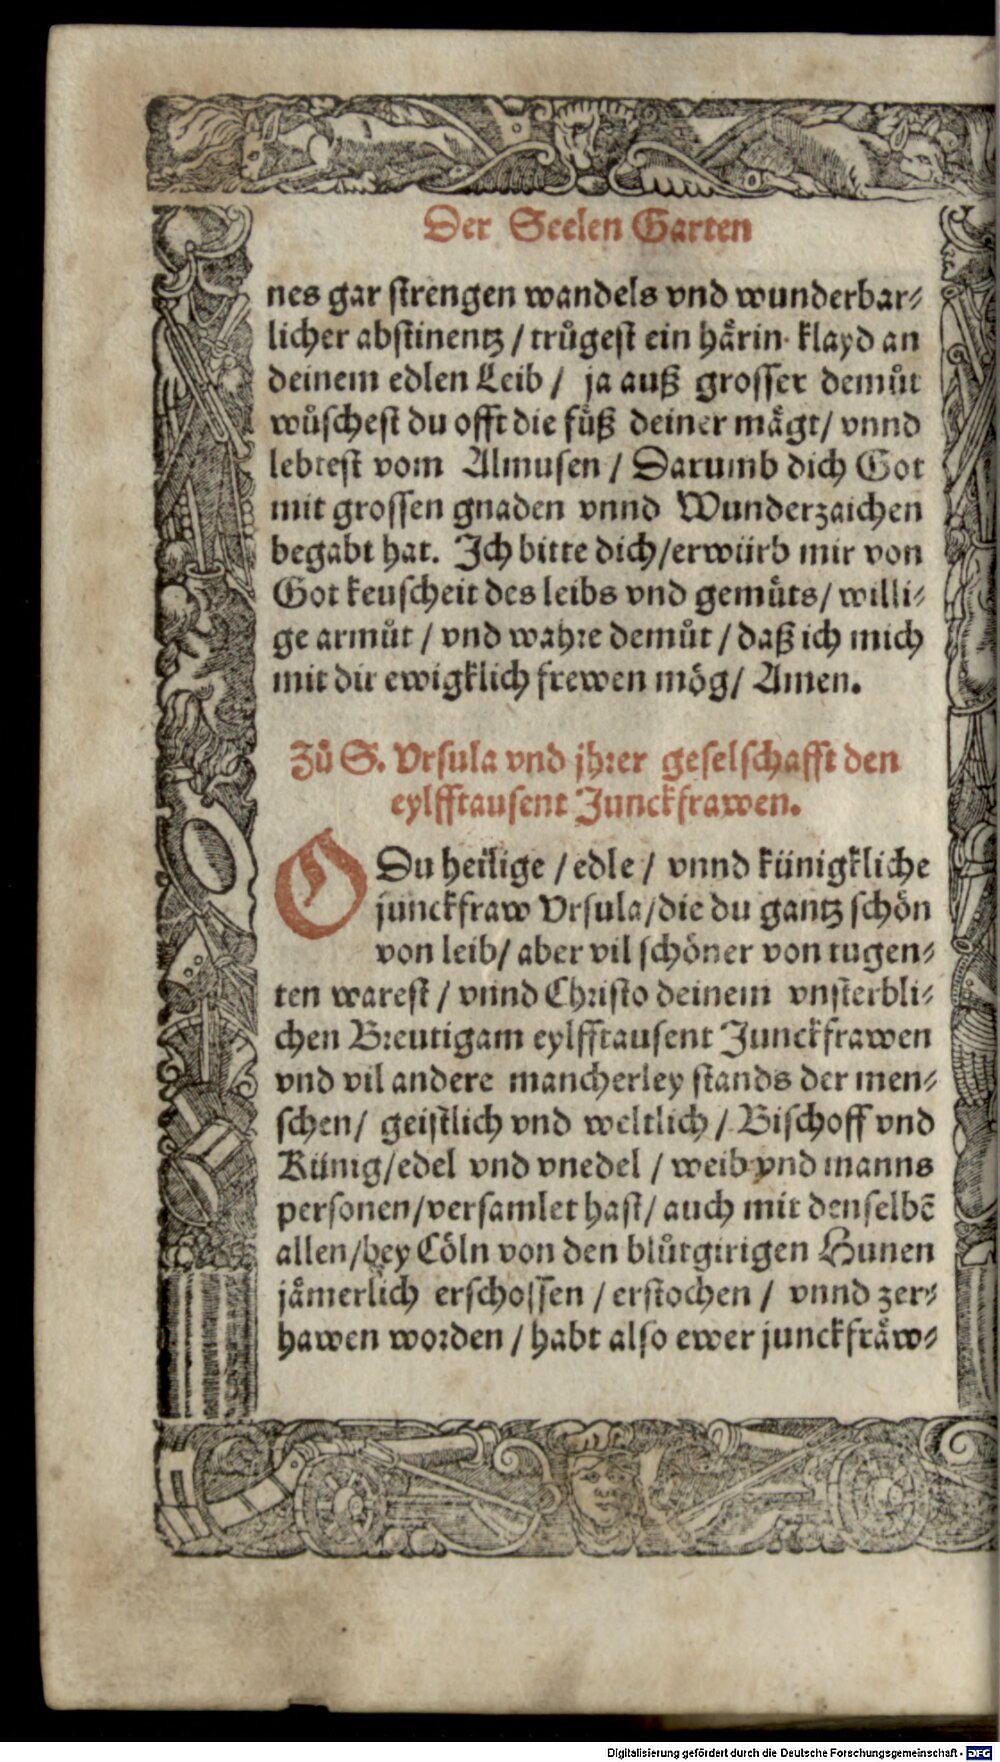 Der Seelen Garten
nes gar strengen wandels vnd wunderbar⸗
licher abstinentz / trůgest ein hårin klayd an
deinem edlen Leib / ja auß grosser demůt
wůschest du offt die füß deiner mågt / vnnd
lebtest vom Almusen / Darumb dich Got
mit grossen gnaden vnnd Wunderzaichen
begabt hat. Ich bitte dich / erwürb mir von
Got keuscheit des leibs vnd gemůts / willi⸗
ge armůt / vnd wahre demůt / daß ich mich
mit dir ewigklich frewen mög / Amen.
Zů S. Vrsula vnd jhrer geselschafft den
eylfftausent Junckfrawen.
O Du heilige / edle / vnnd künigkliche
junckfraw Vrsula / die du gantz schön
von leib / aber vil schöner von tugen⸗
ten warest / vnnd Christo deinem vnsterbli⸗
chen Breutigam eylfftausent Junckfrawen
vnd vil andere mancherley stands der men⸗
schen / geistlich vnd weltlich / Bischoff vnd
Künig / edel vnd vnedel / weib vnd manns
personen / versamlet hast / auch mit denselbẽ
allen / bey Cöln von den blůtgirigen Hunen
jåmerlich erschossen / erstochen / vnnd zer⸗
hawen worden / habt also ewer junckfråw⸗
Digitalisierung gefördert durch die Deutsche Forschungsgemeinschaft - DFG